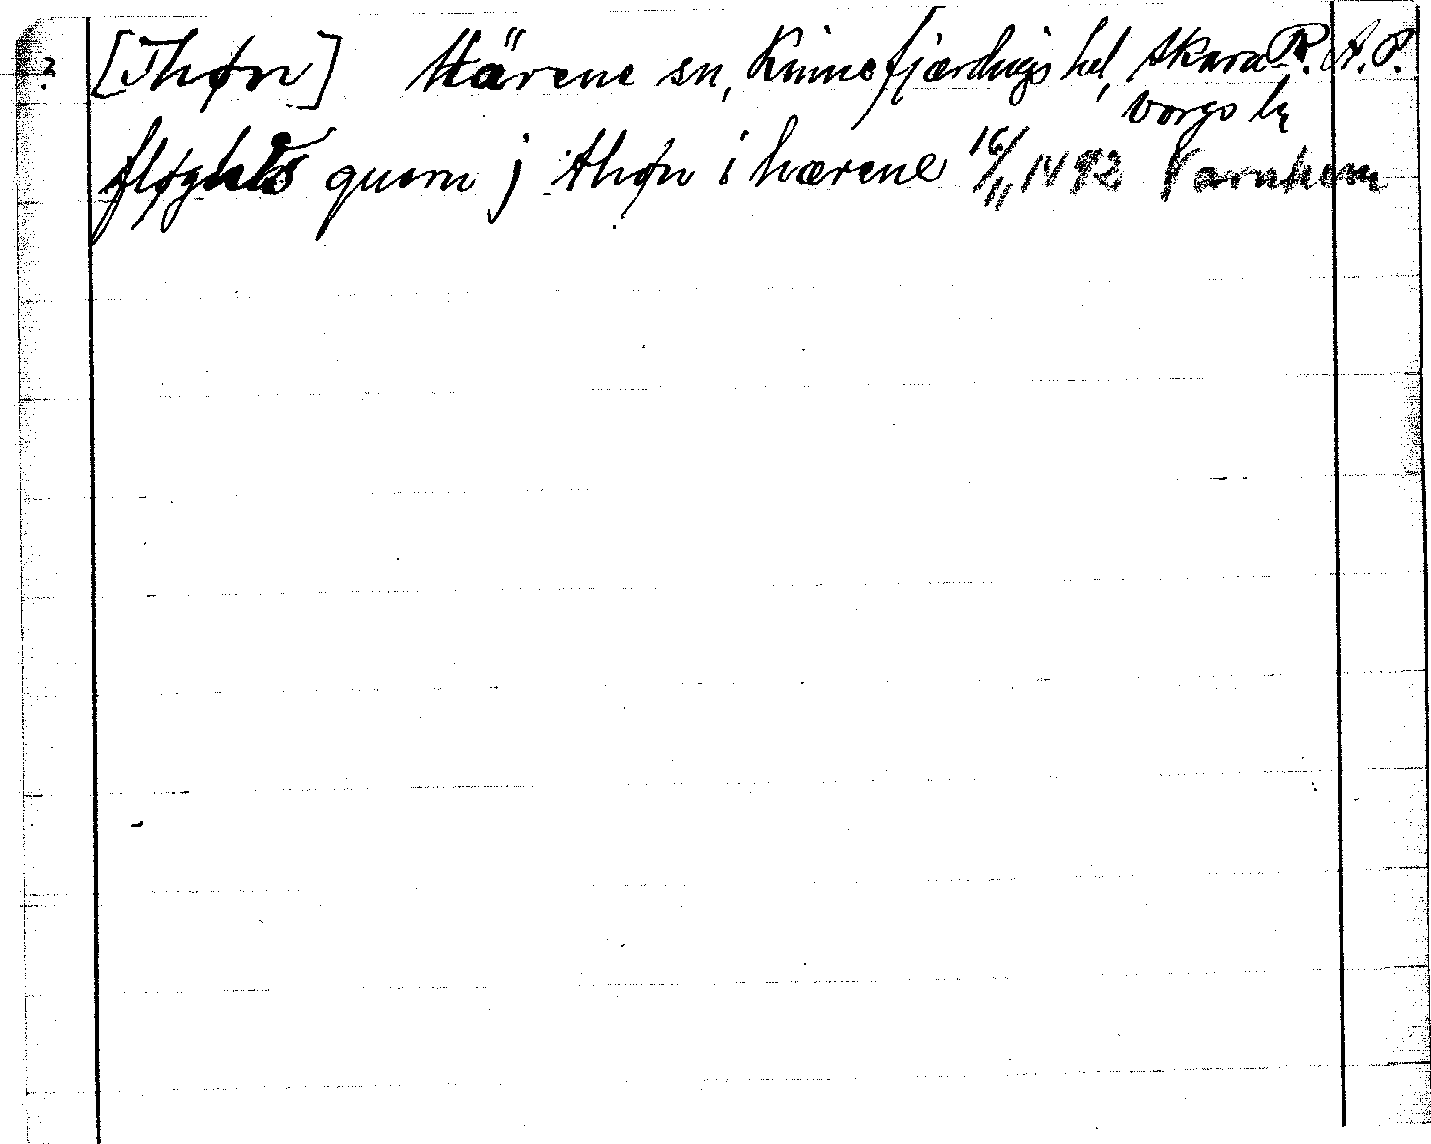 2. [Thøn] Härene sn, Kinnefjærdings hd, Skara R.A.P.
borgs ln
fløghes quern j thøn i hærene 16/11 1492 Varnhem